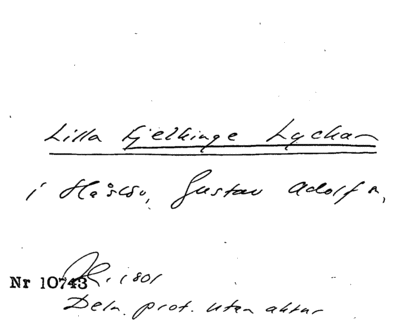 Lilla Fjelkinge Lyckan
i Håslöv, Gustav Adolf n,
Nr 10743 1801
Deln. prot. utan aktnr